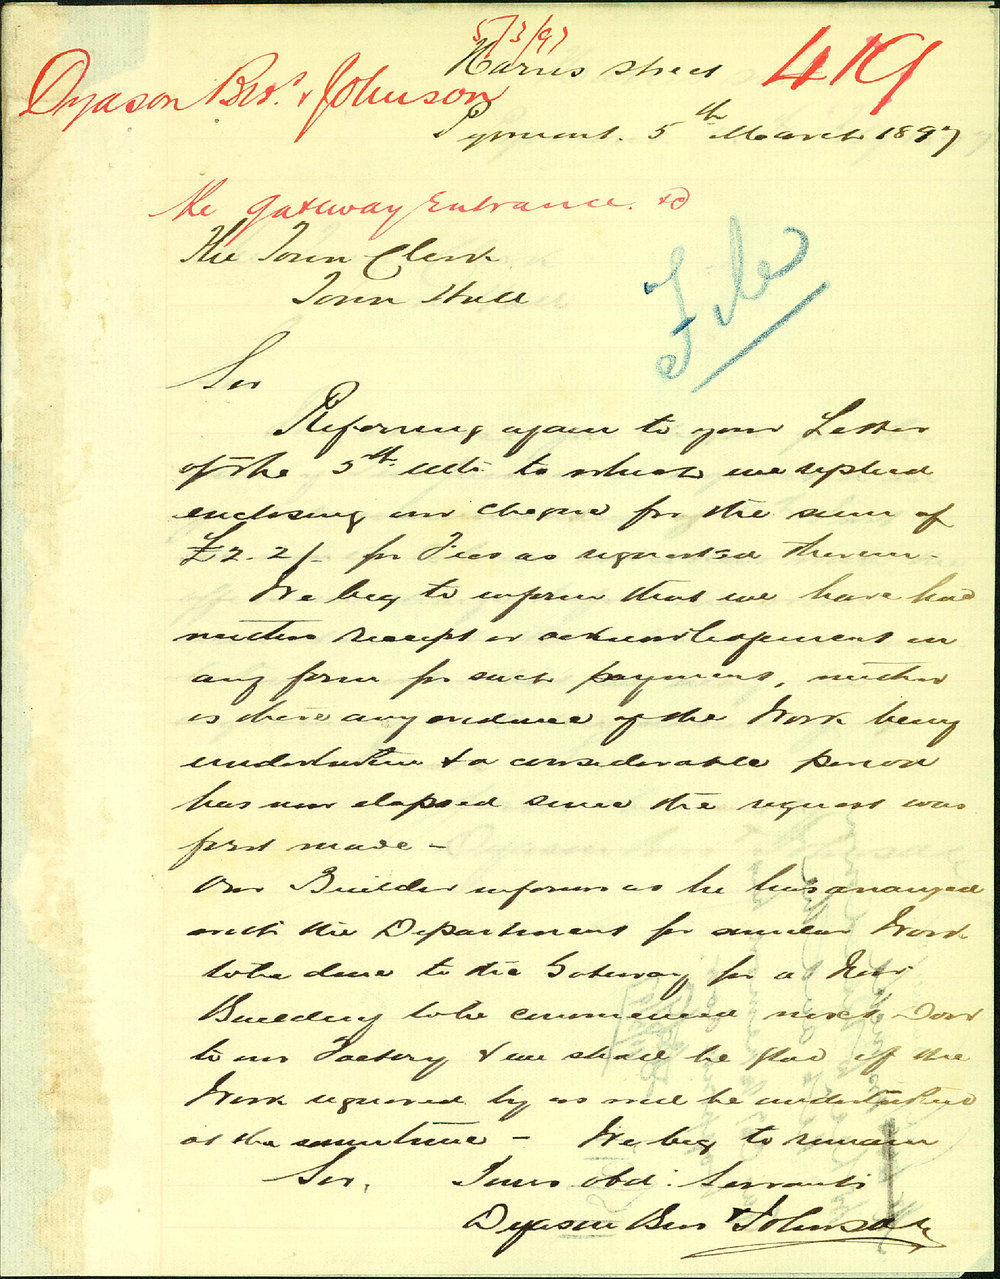 5/3/97
Harris Street
419
Dyason Bros. & Johnson
Pyrmont. 5th March 1897
Re Gateway Entrance. &c
The Town Clerk
Town Hall
File
Sir
Referring again to your Letter
of the 5th ulto to which we replied
enclosing our cheque for the sum of
£2.2/- for Fees as requested therein -
We beg to inform that we have had
neither receipt or acknowledgement in
any form for such payment, neither
is there any evidence of the Work being
undertaken & a considerable period
has now elapsed since the request was
first made -
Our Builder informs us he has arranged
with the Department for similar Work
to be done to the Gateway for a New
Building to be commenced next Door
to our Factory & we shall be glad if the
Work required by us will be undertaken
at the same time - We beg to remain
Sir, Yours obd: Servants
Dyason Bros & Johnson